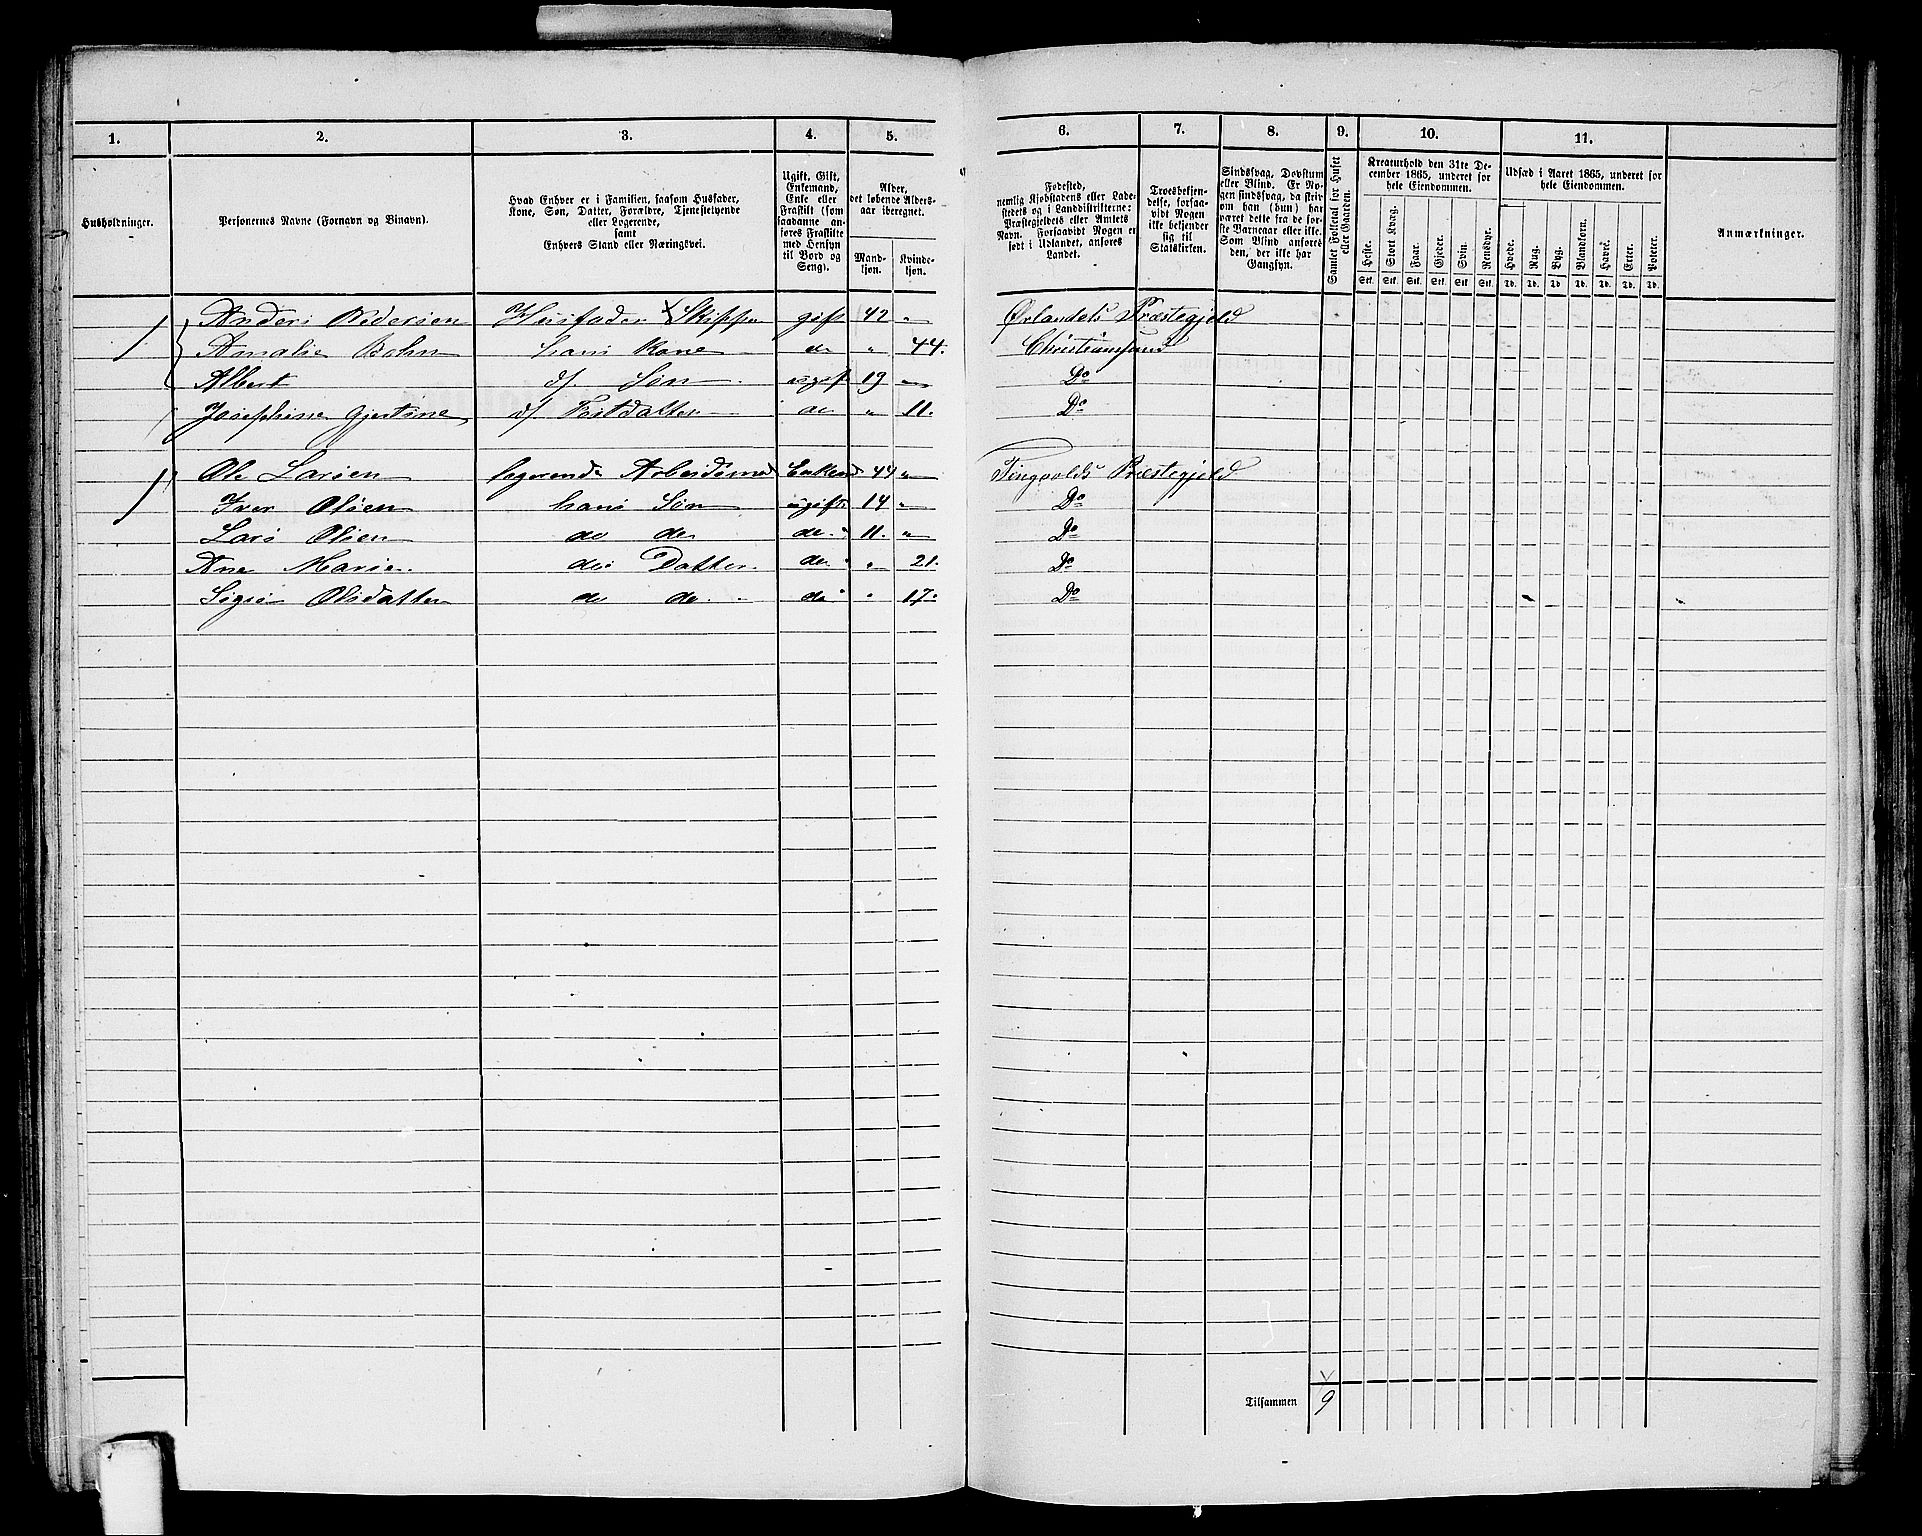 1. 2. 3. 4. 5. 6. 7. 8. 9. 10. 11.
Husholdninger.
Personernes Navne (Fornavn og Binavn).
Hvad Enhver er i Familien, saasom Husfader,
Kone, Søn, Datter, Forældre, Tjenestetyende
eller Logerende,
samt
Enhvers Stand eller Næringsvei.
Ugift, Gift,
Enkemand,
Enke eller
Fraskilt (som
saadanne an-
føres Fraskilte
med Hensyn
til Bord og
Seng).
Alder,
det løbende Alders-
aar iberegnet.
Mand-
kjøn.
Kvinde-
kjøn.
Fødested,
nemlig Kjøbstadens eller Lade-
stedets og i Landdistrikterne:
Præstegjeldets eller Amtets
Navn. Forsaavidt Nogen er
født i Udlandet, anføres
Landet.
Troesbekjen-
delse, forsaa-
vidt Nogen
ikke bekjender
sig til
Statskirken.
Sindssvag, Døvstum
eller Blind. Er No-
gen sindssvag, da skriv
om han (hun) har
været dette fra de før-
ste Barneaar eller ikke.
Som Blind anføres
den, der ikke har
Gangsyn.
Samlet Folketal for Huset
eller Gaarden.
Kreaturhold den 31te De-
cember 1865, underet for
hele Eiendommen.
Heste. Stort Kvæg. Faar. Gjeder. Svin. Rensdyr.
Stk. Stk. Stk. Stk. Stk. Stk.
Udsæd i Aaret 1865, underet for
hele Eiendommen.
Hvede. Rug. Byg. Blandkorn. Havre. Erter. Poteter.
Td. Td. Td. Td. Td. Td. Td.
Anmærkninger.
1 Anders Pedersen Husfader Skipper gift 42 „ Ørlandets Præstegjeld
Amalie Bohn hans Kone de „ 44. Christiansund
Albert ds. Søn ugift 19 „ Do
Josephine Gjertine ds Postdatter de „ 11. Do
1 Ole Larsen logerende Arbeidsmd Enkemd 44 „ Tingvolds Præstegjeld
Iver Olsen hans Søn ugift 14 „ Do
Lars Olsen do do do 11. „ Do
Ane Marie do Datter do „ 21. Do
Olsdatter do do do „ 17. Do
Tilsammen 9